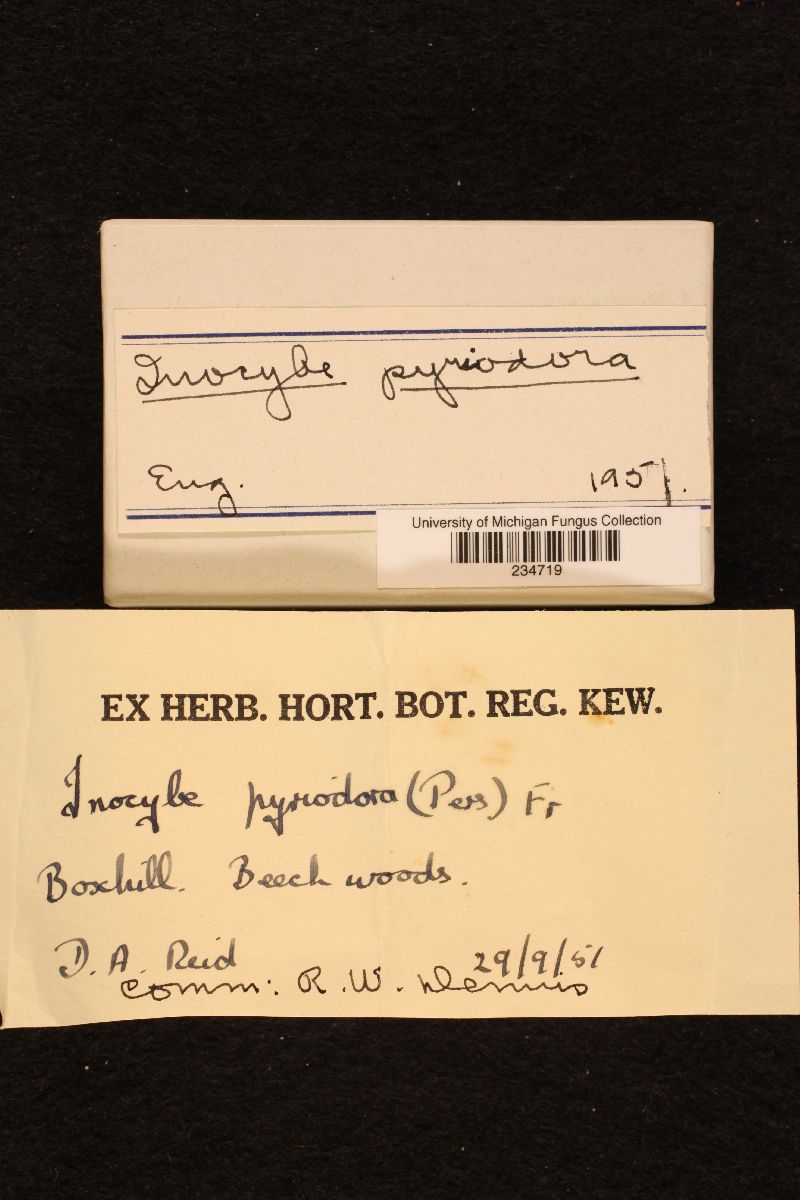 Inocybe pyriodora
Eng. 1951.
University of Michigan Fungus Collection
234719
EX HERB. HORT. BOT. REG. KEW.
Inocybe pyriodora (Pers) Fr
Boxhill. Beech woods.
D. A. Reid 29/9/51
comm: R. W. Dennis